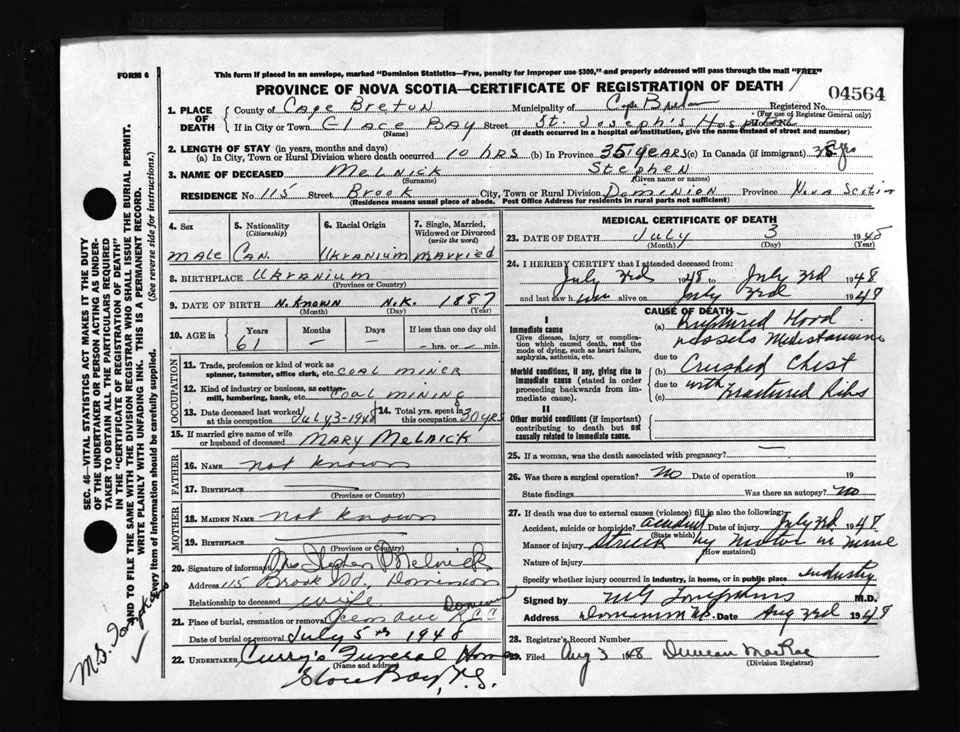 FORM 6
This form if placed in an envelope, marked "Dominion Statistics—Free, penalty for improper use $300," and properly addressed will pass through the mail "FREE"
PROVINCE OF NOVA SCOTIA—CERTIFICATE OF REGISTRATION OF DEATH
04564
1. PLACE OF DEATH County of Cape Breton Municipality of Cape Breton Registered No. (For use of Registrar General only)
If in City or Town Glace Bay (Name) Street St. Joseph's Hospital
(If death occurred in a hospital or institution, give the name instead of street and number)
2. LENGTH OF STAY (in years, months and days)
(a) In City, Town or Rural Division where death occurred 10 hrs (b) In Province 35 years (c) In Canada (if immigrant) 38 yrs
3. NAME OF DECEASED Melnick (Surname) Stephen (Given name or names)
RESIDENCE No. 115 Street Brook City, Town or Rural Division Dominion Province Nova Scotia
(Residence means usual place of abode. Post Office Address for residents in rural parts not sufficient)
4. Sex male
5. Nationality (Citizenship) Can.
6. Racial Origin Ukranium
7. Single, Married, Widowed or Divorced (write the word) married
8. BIRTHPLACE Ukranium (Province or Country)
9. DATE OF BIRTH N. Known (Month) N.K. (Day) 1887 (Year)
10. AGE in Years 61 Months — Days — If less than one day old — hrs. or — min.
OCCUPATION
11. Trade, profession or kind of work as spinner, teamster, office clerk, etc. coal miner
12. Kind of industry or business, as cotton-mill, lumbering, bank, etc. coal mining
13. Date deceased last worked at this occupation July 3-1948 14. Total yrs. spent in this occupation 30 yrs
15. If married give name of wife or husband of deceased Mary Melnick
FATHER
16. NAME not known
17. BIRTHPLACE (Province or Country)
MOTHER
18. MAIDEN NAME not known
19. BIRTHPLACE (Province or Country)
20. Signature of informant Mrs Stephen Melnick
Address 115 Brook St. Dominion
Relationship to deceased wife
21. Place of burial, cremation or removal Dominion
Date of burial or removal July 5th 1948
22. UNDERTAKER Curry's Funeral Home
(Name and address)
Glace Bay, N.S.
MEDICAL CERTIFICATE OF DEATH
23. DATE OF DEATH July (Month) 3 (Day) 1948 (Year)
24. I HEREBY CERTIFY that I attended deceased from:
July 3rd 1948 to July 3rd 1948
and last saw him alive on July 3rd 1948
CAUSE OF DEATH
I
Immediate cause
Give disease, injury or complication which caused death, not the mode of dying, such as heart failure, asphyxia, asthenia, etc.
(a) Ruptured
due to
Morbid conditions, if any, giving rise to immediate cause (stated in order proceeding backwards from immediate cause).
(b) Crushed Chest
due to with
(c) Fractured Ribs
II
Other morbid conditions (if important) contributing to death but not causally related to immediate cause.
25. If a woman, was the death associated with pregnancy? —
26. Was there a surgical operation? no Date of operation 19
State findings Was there an autopsy? no
27. If death was due to external causes (violence) fill in also the following:
Accident, suicide or homicide? accident (State which) Date of injury July 3rd 1948
Manner of injury Struck by Motor in mine (How sustained)
Nature of injury
Specify whether injury occurred in industry, in home, or in public place industry
Signed by M.D.
Address Dominion N.S. Date Aug 3rd 1948
28. Registrar's Record Number
29. Filed Aug 3 1948 Duncan MacRae (Division Registrar)
SEC. 46—VITAL STATISTICS ACT MAKES IT THE DUTY OF THE UNDERTAKER OR PERSON ACTING AS UNDERTAKER TO OBTAIN ALL THE PARTICULARS REQUIRED IN THE "CERTIFICATE OF REGISTRATION OF DEATH" AND TO FILE THE SAME WITH THE DIVISION REGISTRAR WHO SHALL ISSUE THE BURIAL PERMIT.
WRITE PLAINLY WITH UNFADING INK. THIS IS A PERMANENT RECORD.
Every item of information should be carefully supplied. (See reverse side for instructions.)